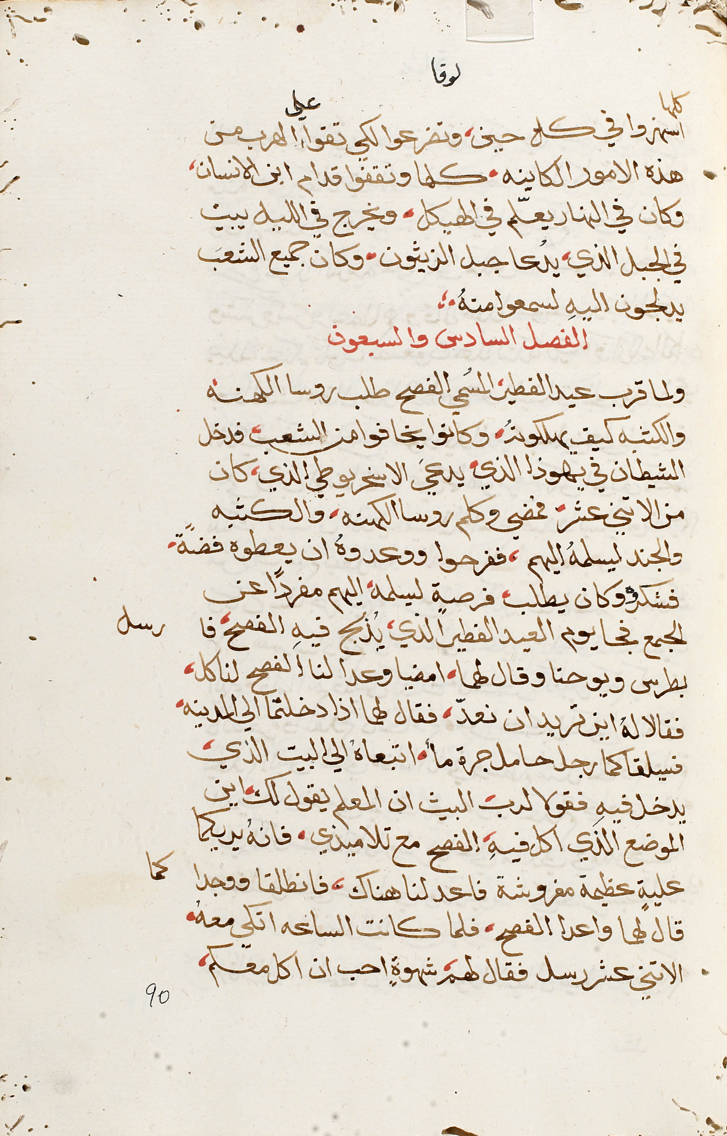 لوقا
على
كلها
اسهروا في كل حين، وتضرعوا لكي تقوا الهرب من
هذه الامور الكاينه، كلها وتقفوا قدام ابن الانسان،
وكان في النهار يعلّم في الهيكل، ويخرج في الليل يبيت
في الجبل الذي، يدُعا جبل الزيتون، وكان جميع الشعب
يدلجون اليهِ لسمعوا منهُ،
الفصل السادس والسبعون
ولما قرب عيد الفطير، المسُمي الفصح طلب روسا الكهنه
والكتبه كيف يهلكونهُ، وكانوا يخافوا من الشعب، فدخل
الشيطان في يهوذا الذي، يدعَي الاسخريوطي الذي، كان
من الاتني عشر، فمضي وكلم روسا الكهنه، والكتبه
والجند ليسلمهُ اليهم، ففرحوا ووعدوهُ ان يعطوه فضةً،
فشكر، وكان يطلب، فرصةٍ ليسلمهُ اليهم مفرداً عن
الجمع فجا يوم العيد الفطير الذي، يُذبح فيهِ الفصح، فا رسل
بطرس ويوحنا وقال لهما، امضيا وعدا لنا الفصح لناكل،
فقالا لهُ اين تريد ان نعدّ، فقال لهما اذا دخلتما الي المدينه،
فسيلقاكما رجل حامل جرة ماً، اتبعاهُ الي البيت الذي،
يدخل فيهِ فقولا لرب البيت ان المعلم يقول لك، اين
الموضع الذي اكل فيهِ، الفصح مع تلاميذي، فانهُ يريكما
عليةٍ عظيمة مفروشة فاعدا لنا هناك، فانطلقا ووجدا كما
قال لهما واعدا الفصح، فلما كانت الساعه اتكي معهُ،
الاتني عشر رسل فقال لهم، شهوةٍ احب ان اكل معكم،
90